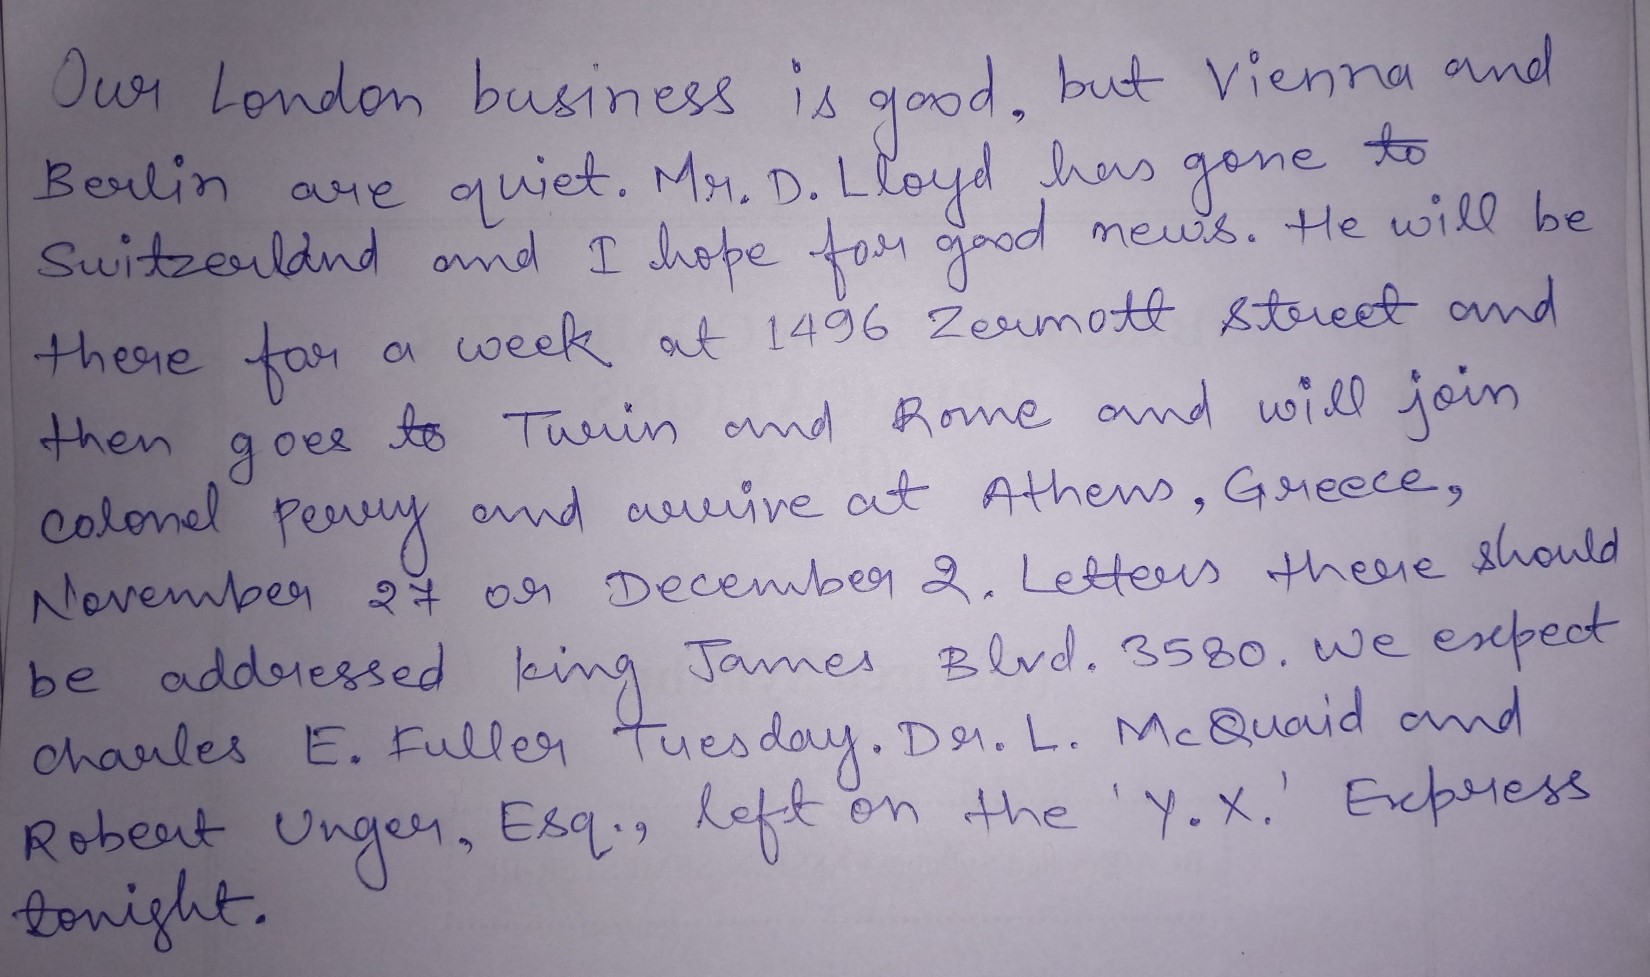 Our London business is good, but Vienna and
Berlin are quiet. Mr. D. Lloyd has gone to
Switzerland and I hope for good news. He will be
there for a week at 1496 Zermott Street and
then goes to Turin and Rome and will join
Colonel Perry and arrive at Athens, Greece,
November 27 or December 2. Letters there should
be addressed King James Blvd. 3580. We expect
Charles E. Fuller Tuesday. Dr. L. McQuaid and
Robert Unger, Esq., left on the 'Y. X.' Express
tonight.